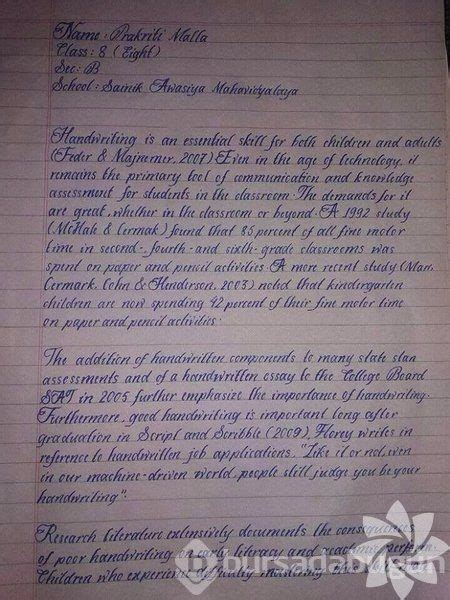 Name : Prakriti Malla
Class : 8 ( Eight )
Sec : B
School : Sainik Awasiya Mahavidyalaya
Handwriting is an essential skill for both children and adults
(Feder & Majnemer, 2007) Even in the age of technology, it
remains the primary tool of communication and knowledge
assessment for students in the classroom. The demands for it
are great, whether in the classroom or beyond. A 1992 study
(McHale & Cermak) found that 85 percent of all fine motor
time in second-, fourth- and sixth-grade classrooms was
spent on paper and pencil activities. A more recent study (Marr,
Cermark, Cohn & Henderson, 2003) noted that kindergarten
children are now spending 42 percent of their fine motor time
on paper and pencil activities.
The addition of handwritten components to many state stan
assessments and of a handwritten essay to the College Board
SAT in 2005 further emphasize the importance of handwriting.
Furthermore, good handwriting is important long after
graduation in Script and Scribble (2009), Florey writes in
reference to handwritten job applications. "Like it or not, even
in our machine-driven world, people still judge you be your
handwriting".
Research literature extensively documents the consequences
of poor handwriting on early literacy and academic perform
Children who experience difficulty mastering this
bursadabugün